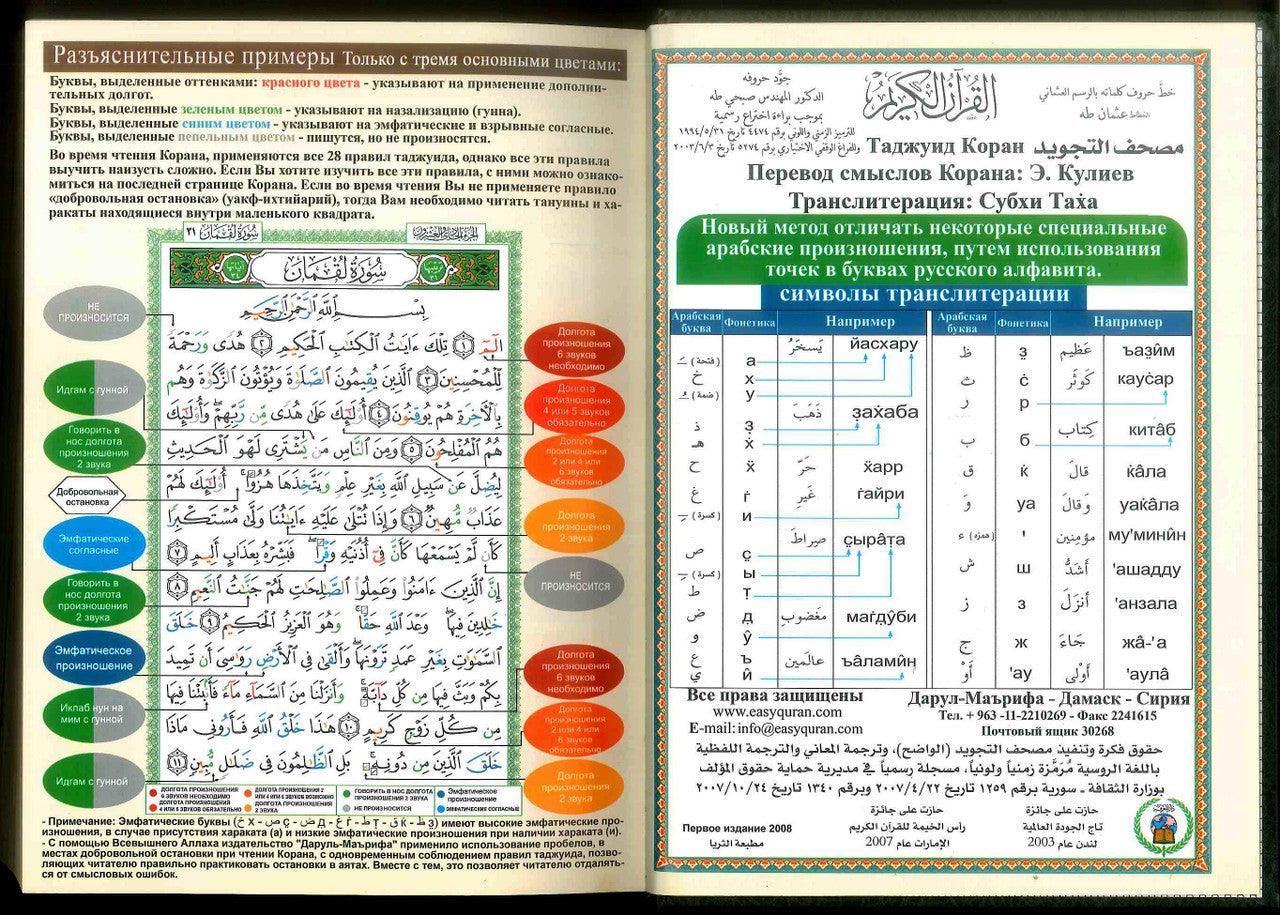 Разъяснительные примеры Только с тремя основными цветами:
Буквы, выделенные оттенками: красного цвета - указывают на применение дополни-
тельных долгот.
Буквы, выделенные зеленым цветом - указывают на назализацию (гунна).
Буквы, выделенные синим цветом - указывают на эмфатические и взрывные согласные.
Буквы, выделенные пепельным цветом - пишутся, но не произносятся.
Во время чтения Корана, применяются все 28 правил таджуида, однако все эти правила
выучить наизусть сложно. Если Вы хотите изучить все эти правила, с ними можно ознако-
миться на последней странице Корана. Если во время чтения Вы не применяете правило
«добровольная остановка» (уакф-ихтийарий), тогда Вам необходимо читать тануины и ха-
ракаты находящиеся внутри маленького квадрата.
سُورَةُ لُقْمَان ٣١
سُورَةُ لُقْمَان
بِسْمِ اللَّهِ الرَّحْمَٰنِ الرَّحِيمِ
الٓمٓ ١ تِلْكَ ءَايَٰتُ الْكِتَٰبِ الْحَكِيمِ ٢ هُدًى وَرَحْمَةً
لِّلْمُحْسِنِينَ ٣ الَّذِينَ يُقِيمُونَ الصَّلَوٰةَ وَيُؤْتُونَ الزَّكَوٰةَ وَهُم
بِالْءَاخِرَةِ هُمْ يُوقِنُونَ ٤ أُو۟لَٰٓئِكَ عَلَىٰ هُدًى مِّن رَّبِّهِمْ وَأُو۟لَٰٓئِكَ
هُمُ الْمُفْلِحُونَ ٥ وَمِنَ النَّاسِ مَن يَشْتَرِى لَهْوَ الْحَدِيثِ
لِيُضِلَّ عَن سَبِيلِ اللَّهِ بِغَيْرِ عِلْمٍ وَيَتَّخِذَهَا هُزُوًا أُو۟لَٰٓئِكَ لَهُمْ
عَذَابٌ مُّهِينٌ ٦ وَإِذَا تُتْلَىٰ عَلَيْهِ ءَايَٰتُنَا وَلَّىٰ مُسْتَكْبِرًا
كَأَن لَّمْ يَسْمَعْهَا كَأَنَّ فِىٓ أُذُنَيْهِ وَقْرًا فَبَشِّرْهُ بِعَذَابٍ أَلِيمٍ ٧
إِنَّ الَّذِينَ ءَامَنُوا۟ وَعَمِلُوا۟ الصَّٰلِحَٰتِ لَهُمْ جَنَّٰتُ النَّعِيمِ ٨
خَٰلِدِينَ فِيهَا وَعْدَ اللَّهِ حَقًّا وَهُوَ الْعَزِيزُ الْحَكِيمُ ٩ خَلَقَ
السَّمَٰوَٰتِ بِغَيْرِ عَمَدٍ تَرَوْنَهَا وَأَلْقَىٰ فِى الْأَرْضِ رَوَٰسِىَ أَن تَمِيدَ
بِكُمْ وَبَثَّ فِيهَا مِن كُلِّ دَآبَّةٍ وَأَنزَلْنَا مِنَ السَّمَآءِ مَآءً فَأَنۢبَتْنَا فِيهَا
مِن كُلِّ زَوْجٍ كَرِيمٍ ١٠ هَٰذَا خَلْقُ اللَّهِ فَأَرُونِى مَاذَا
خَلَقَ الَّذِينَ مِن دُونِهِ بَلِ الظَّٰلِمُونَ فِى ضَلَٰلٍ مُّبِينٍ ١١
НЕ
ПРОИЗНОСИТСЯ
Идгам с гунной
Говорить в
нос долгота
произношения
2 звука
Добровольная
остановка
Эмфатические
согласные
Говорить в
нос долгота
произношения
2 звука
Эмфатическое
произношение
Иклаб нун на
мим с гунной
Идгам с гунной
Долгота
произношения
6 звуков
необходимо
Долгота
произношения
4 или 5 звуков
обязательно
Долгота
произношения
2 или 4 или
6 звуков
обязательно
Долгота
произношения
2 звука
НЕ
ПРОИЗНОСИТСЯ
Долгота
произношения
6 звуков
необходимо
Долгота
произношения
2 или 4 или
6 звуков
обязательно
Долгота
произношения
2 звука
ДОЛГОТА ПРОИЗНОШЕНИЯ
6 ЗВУКОВ НЕОБХОДИМО
ДОЛГОТА ПРОИЗНОШЕНИЯ
4 ИЛИ 5 ЗВУКОВ ОБЯЗАТЕЛЬНО
ДОЛГОТА ПРОИЗНОШЕНИЯ 2
ИЛИ 4 ИЛИ 6 ЗВУКОВ ВОЗМОЖНО
ДОЛГОТА ПРОИЗНОШЕНИЯ
2 ЗВУКА
ГОВОРИТЬ В НОС ДОЛГОТА
ПРОИЗНОШЕНИЯ 2 ЗВУКА
НЕ ПРОИЗНОСИТСЯ
Эмфатическое
произношение
ЭМФАТИЧЕСКИЕ СОГЛАСНЫЕ
- Примечание: Эмфатические буквы имеют высокие эмфатические про-
изношения, в случае присутствия хараката (а) и низкие эмфатические произношения при наличии хараката (и).
- С помощью Всевышнего Аллаха издательство "Даруль-Маърифа" применило использование пробелов, в
местах добровольной остановки при чтении Корана, с одновременным соблюдением правил таджуида, позво-
ляющих читателю правильно практиковать остановки в аятах. Вместе с тем, это позволяет читателю отдалять-
ся от смысловых ошибок.
القرآن الكريم
خطّ حروف كلماته بالرسم العثماني
الخطاط عثمان طه
جوّد حروفه
الدكتور المهندس صبحي طه
بموجب براءة اختراع رسمية
للترميز الزمني واللوني برقم ٤٤٧٤ تاريخ ١٩٩٤/٥/٣١
وللفراغ الوقفي الاختياري برقم ٥٢٧٤ تاريخ ٢٠٠٣/٦/٣
Таджуид Коран مصحف التجويد
Перевод смыслов Корана: Э. Кулиев
Транслитерация: Субхи Таẋа
Новый метод отличать некоторые специальные
арабские произношения, путем использования
точек в буквах русского алфавита.
символы транслитерации
Арабская буква Фонетика Например
(فتحة) а يَسخَرُ йасхару
خ х
(ضمة) у
ذ з̣ ذَهَبَ з̣аẋаба
هـ ẋ
ح ẍ حَرّ ẍарр
غ ѓ غَيرِ ѓайри
(كسرة) и
ص с̣ صِراطَ с̣ырат̣а
(كسرة) ы
ط т̣
ض д̣ مَغضوبِ маѓд̣ŷби
و ŷ
ع ъ عالَمين ъâламûн
ي û
Арабская буква Фонетика Например
ظ з̣ عَظيم ъаз̣ûм
ث ċ كَوثَر кауċар
ر р
ب б كِتاب китâб
ق ќ قالَ ќâла
وَ уа وَقالَ уаќâла
(همزة) ء ' مؤمنين му'минûн
ش ш أَشَدُّ 'ашадду
ز з أَنزَلَ 'анзала
ج ж جَاءَ жâ-'а
أَوْ 'ау أَوْلى 'аулâ
Все права защищены
www.easyquran.com
E-mail: info@easyquran.com
Дарул-Маърифа - Дамаск - Сирия
Тел. + 963 -11-2210269 - Факс 2241615
Почтовый ящик 30268
حقوق فكرة وتنفيذ مصحف التجويد (الواضح)، وترجمة المعاني والترجمة اللفظية
باللغة الروسية مُرَمَّزة زمنياً ولونياً، مسجلة رسمياً في مديرية حماية حقوق المؤلف
بوزارة الثقافة - سورية برقم ١٢٥٩ تاريخ ٢٠٠٧/٤/٢٢ وبرقم ١٣٤٠ تاريخ ٢٠٠٧/١٠/٢٤
Первое издание 2008
مطبعة الثريا
حازت على جائزة
رأس الخيمة للقرآن الكريم
الإمارات عام 2007
حازت على جائزة
تاج الجودة العالمية
لندن عام 2003